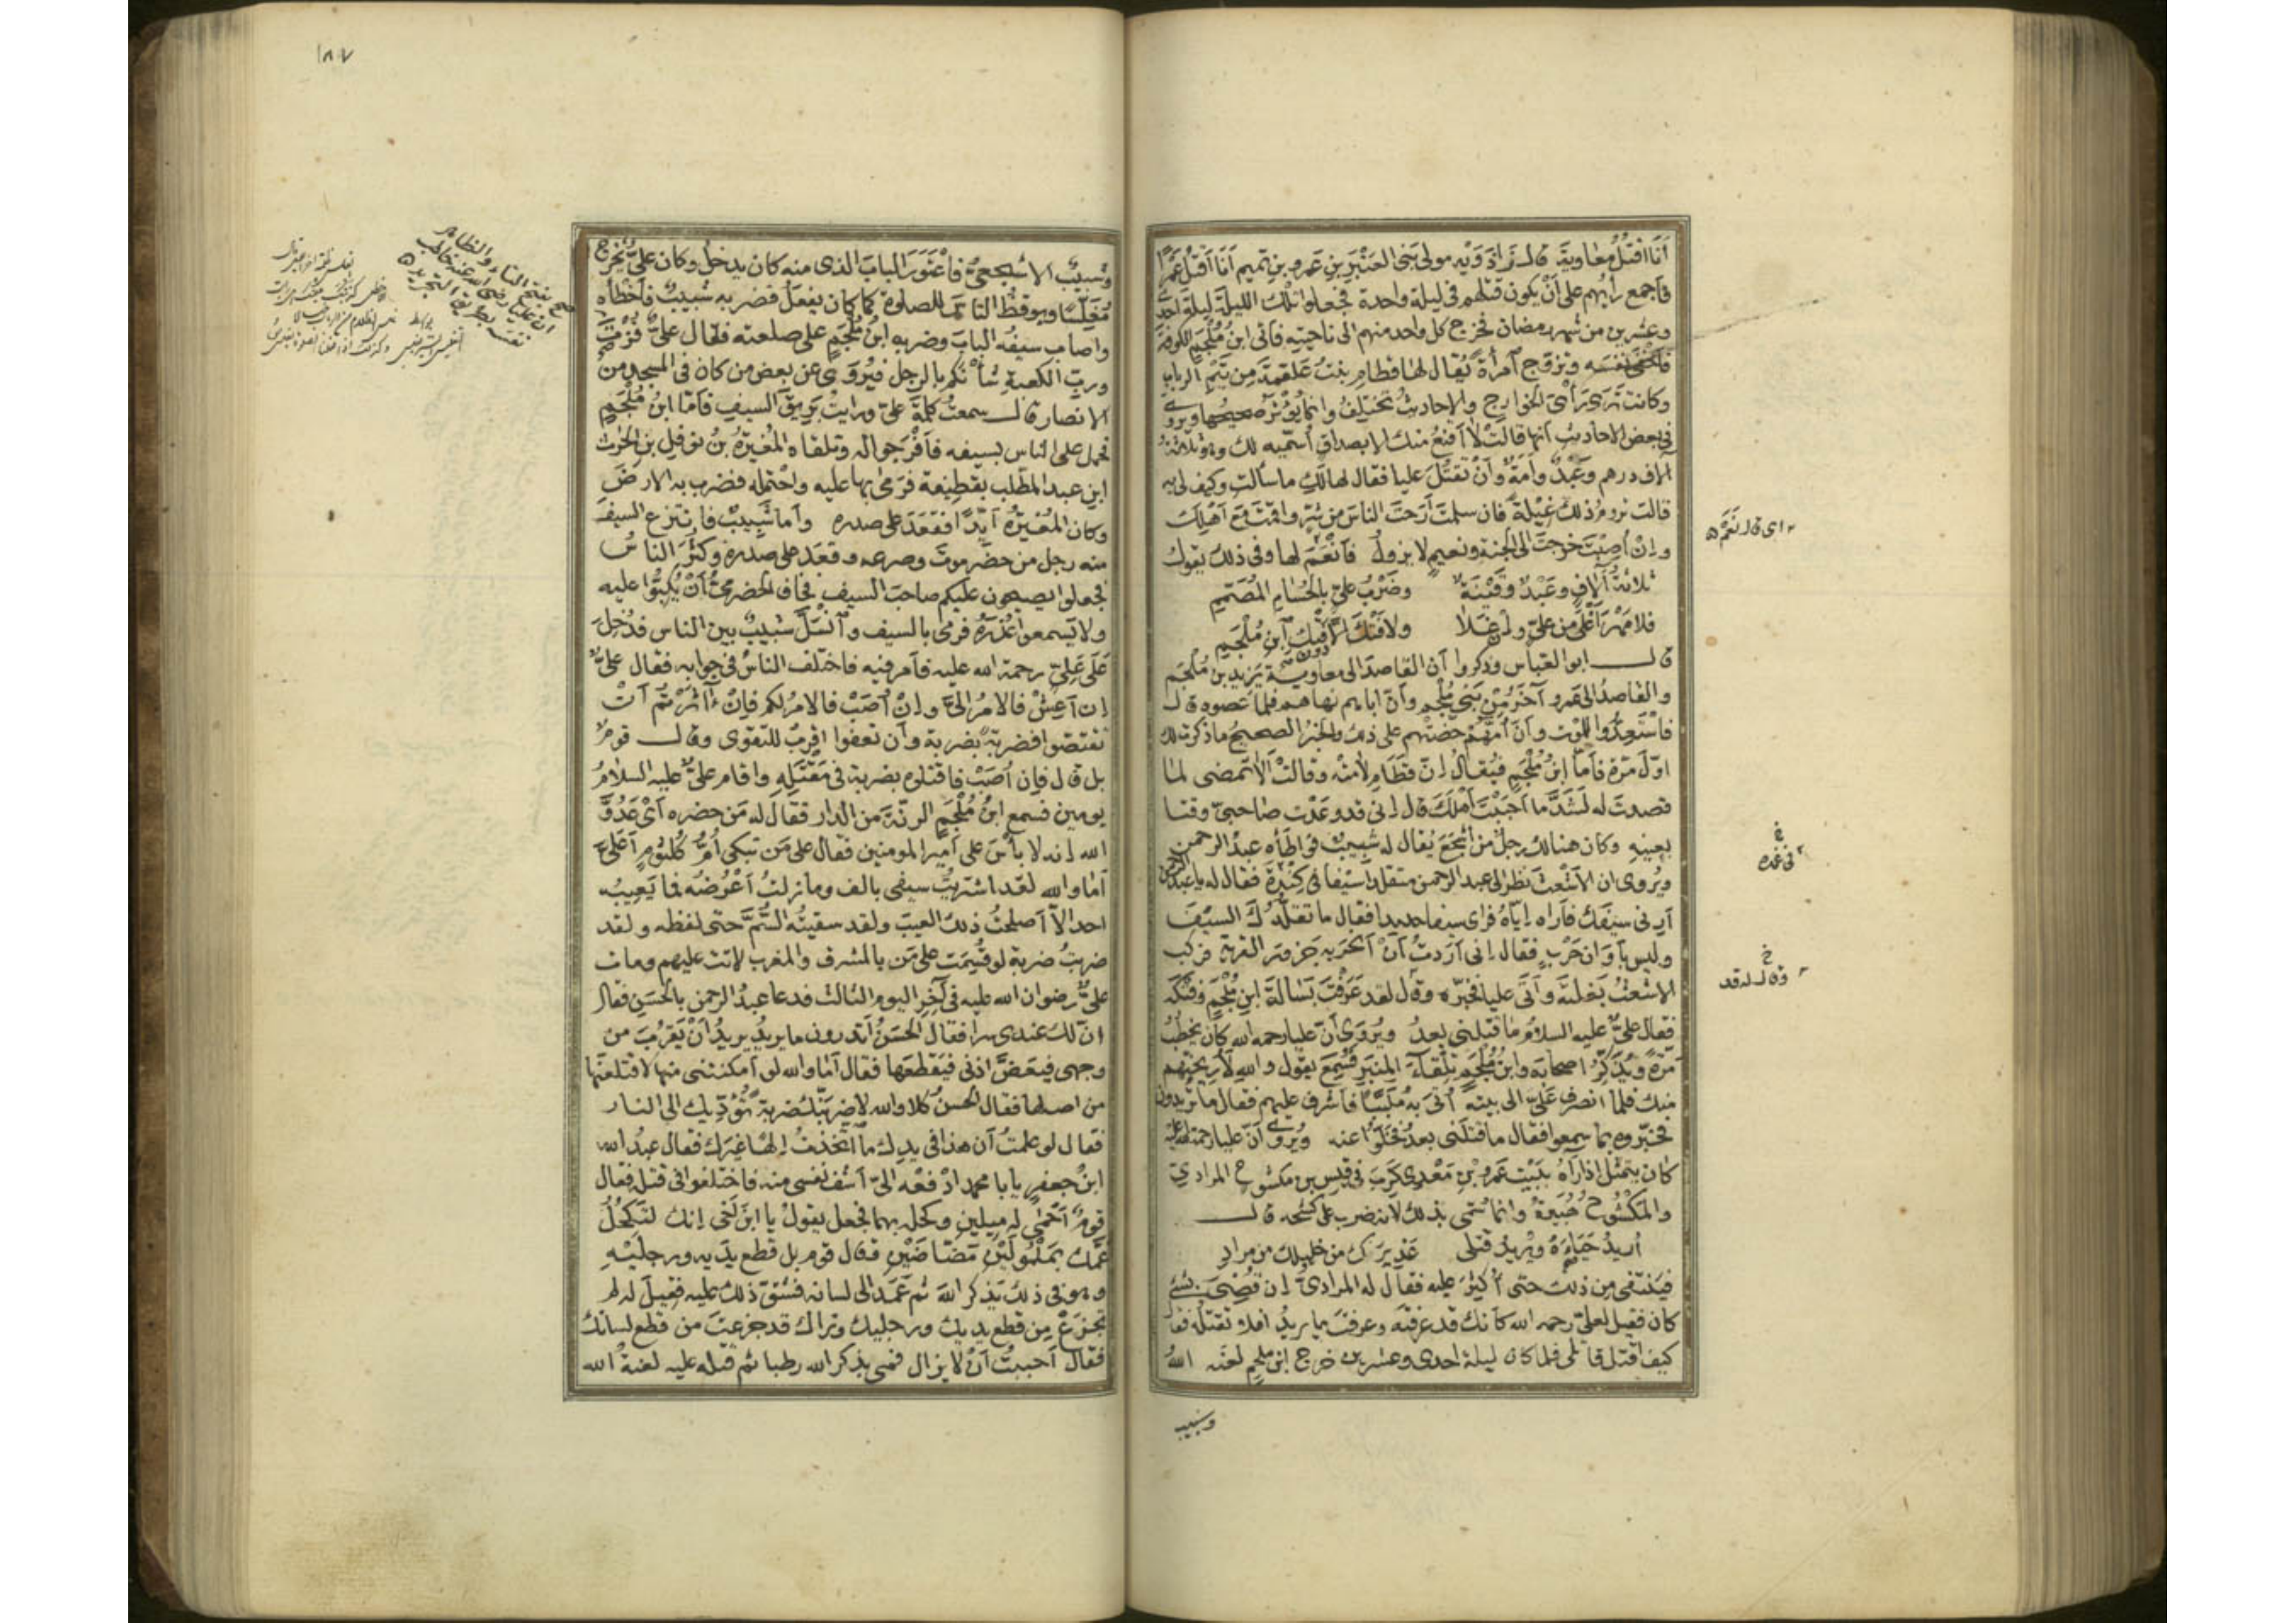 أَنَا أَقْتُلُ مُعَاوِيةَ قال زَاذَوَيْه مولى بَنى العَنْبَرِ بنِ عَمرِو بنِ تميم أَنَا أَقتل عَمرًا
فأجمع رأيُهم على أَنْ يكون قتلهم فى ليلة واحدة فجعلوا تلك الليلةَ ليلةَ احدى
وعشرين من شهر رمضان فخرج كل واحد منهم الى ناحيته فأتى ابنُ مُلْجَمٍ الكوفةَ
فأخفى نفسَه وتزوّج امرأةً يُقال لها قطامِ بنتُ عَلقمةَ من تَيْمِ الربابِ
وكانت ترى رأىَ الخوارج والاحاديثُ تختلِفُ وانما يُؤْثَرُ صحيحُها ويروى
فى بعض الاحاديثِ أنها قالتْ لا أَقنعُ منك الا بصداقٍ أُسمّيه لك وهو ثلاثةُ
آلاف درهم وعَبْدٌ وأمةٌ وأنْ تَقتُلَ عليا فقال لها لكِ ما سألتِ وكيف لى به
قالت تروم ذلك غِيْلةً فان سلمتَ أَرَحتَ الناسَ من شرٍّ وأقمتَ مَعَ أهْلِك
وإنْ أُصِبْتَ خرجتَ الى الجنة ونعيمٍ لا يزولُ فأَنْعَمَ لها وفى ذلك يقول
ثلاثةُ آلافٍ وعَبْدٌ وقَيْنَةٌ وضَرْبُ علىٍّ بالحُسَامِ المُصَمَّمِ
فلا مَهْرَ أَغْلَى من علىٍّ وإن غَلا ولا فَتْكَ إلّا دون فَتْكِ ابنِ مُلْجَمِ
قال ابو العبّاس وذكروا أن القاصدَ الى معاوية يَزيدُ بن مُلْجَم
والقاصدُ الى عَمرو آخَرُ مِنْ بَنى مُلْجَم وأنّ اباهم نهاهم فلما عصوه قال
فاسْتَعِدُّوا للموْتِ وأنّ أُمَّهُمْ حَضَّتْهم على ذلك والخبرُ الصحيحُ ما ذكرت لك
اوّلَ مرّة فأمّا ابنُ مُلْجَمٍ فيُقالُ إنّ قطَامِ لامتْه وقالتْ ألا تمضى لما
قصدتَ له لَشَدَّ ما أَحْبَبْتَ أهْلَكَ قال إنى قد وَعَدْت صاحبىّ وقتا
بعينهِ وكان هنالك رجلٌ من أَشجَعَ يُقال له شَبِيبٌ فواطأه عبدُ الرحمن
ويُروى ان الأشعثَ نظر الى عبد الرحمن متقلدا سَيْفا فى كِنْدَةَ فقال له يا عبد الرحمن
أَرِنى سيفَك فأراه إيّاهُ فرأى سيفا حديدا فقال ما تقلُّدُك السيفَ
وليس بأوَانِ حَرْبٍ فقال إنى أرَدتُ أنْ أنحرَ به جَزورَ القرية فركب
الاشعثُ بَغلتَه وأتى عليا فخبّره وقال لقد عَرَفْتَ بَسالةَ ابنِ مُلْجَمٍ وفَتْكَه
فقال علىٌّ عليه السلامُ ما قتلنى بعدُ ويُرْوَى أنّ عليا رحمه الله كان يخطُبُ
مَرّةً ويُذكِّرُ اصحابَه وابنُ مُلْجَمٍ تِلْقَاءَ المِنبرِ فسُمِعَ يقول والله لأُرِيحنّهم
منك فلما انصرف علىّ الى بيته أُتِىَ به مُلَبَّبًا فأشرف عليهم فقال ما تُريدون
فخبّروه بما سمعوا فقال ما قتلنى بعدُ فخَلّوا عنه ويُروى أنّ عليا رحمة الله عليه
كان يتمثل اذا رآه ببيْتِ عَمرِو بنِ مَعْدِى كَرِبَ فى قيس بن مكشوح المرادىّ
والمكشُوحُ هُبَيرةُ وانما سُمّى بذلك لانه ضرب على كشحه قال
أُريدُ حَيَاءَهُ ويُريدُ قتلى عَذيرَك من خليلك من مرادِ
فينتفى من ذلك حتى أُكْثِرَ عليه فقال له المرادىّ إن قُضِىَ شئ
كان فقيل لعلىّ رحمه الله كأنك قد عرفته وعرفتَ ما يريدُ أفلا تقتلُه فقال
كيف أقتل قاتلى فلما كان ليلة احدى وعشرين خرج ابن ملجم لعنه اللهُ
وشبيب
اى قال نَعَمْ
خ
فى غمده
خ
وقال له قد
١٨٧
وشبيبٌ الاشجعىُّ فاعْتَوَرَا البابَ الذى منه كان يدخلُ وكان علىٌّ يَخرج
مُغَلِّسًا ويوقظُ الناسَ للصلوة كما كان يفعل فضربه شبيبٌ فأخطأه
واصاب سيفُه البابَ وضربه ابنُ مُلْجَمٍ على صلعته فقال علىٌّ فُزْتُ
وربِّ الكعبةِ شأنَكم بالرجل فيُروَى عن بعض من كان فى المسجد من
الانصار قال سمعتُ كلمةَ علىٍّ ورايتُ بَرِيقَ السيفِ فأمّا ابنُ مُلْجَمٍ
فحمل على الناس بسيفه فأفْرَجوا له وتلقاه المُغيرةُ بنُ نوفلِ بنِ الحرثِ
ابنِ عبد المطّلب بقطيفة فرَمَى بها عليه واحْتمله فضرب به الارضَ
وكان المُغيرةُ أَيِّدًا فقعَدَ على صدره وأما شَبِيبٌ فانتزع السيفَ
منه رجل من حضرموتَ وصرعه وقعَد على صدره وكَثُرَ الناسُ
فجعلوا يصيحون عليكم صاحبَ السيفِ فخاف الحضرمىُّ أنْ يُكِبُّوا عليه
ولا يَسمعوا عُذْرَهُ فرمى بالسيف وانْسَلَّ شبيبٌ بين الناس فدُخِلَ
عَلَى عَلِىٍّ رحمة الله عليه فأُمر فيه فاختلف الناسُ فى جوابه فقال علىٌّ
إن أَعِشْ فالامرُ الىّ وإنْ أُصَبْ فالامرُ لكم فإنْ آثرْتُم أنْ
تقتصّوا فضربةٌ بضربة وأن تعفوا اقربُ للتقوى وقال قومٌ
بل قال فإن أُصَبْ فاقتلوه بضربة فى مَقْتَلِهِ واقام علىٌّ عليه السلامُ
يومين فسمع ابنُ مُلْجَمٍ الرنّةَ من الدار فقال له مَن حضره أىْ عَدُوَّ
الله إنه لا بأْسَ على امير المومنين فقال على مَن تبكى أمُّ كُلثومٍ أعَلَىَّ
أمَا والله لقد اشتريتُ سيفى بالف وما زلتُ أعْرِضُه فما يَعيبُه
احد الّا أصلحتُ ذلك العيبَ ولقد سقيتُه السُّمَّ حتى لفظه ولقد
ضربتُ ضربةً لو قُسِمَت على مَن بالمشرق والمغرب لاتت عليهم ومات
علىٌّ رضوان الله عليه فى آخِرِ اليوم الثالث فدعا عبدُ الرحمن بالحَسَنِ فقال
انّ لك عندى سرا فقال الحسَنُ أتدرون ما يريدُ يريدُ أنْ يَقرُبَ من
وجهى فيعَضَّ اذنى فيَقطعَها فقال أمَا والله لو أمكنتنى منها لاقتلعتُها
من اصلها فقال الحسنُ كلا والله لأضربنّك ضربةً تُؤَدّيك الى النار
فقال لو علمتُ أن هذا فى يدِك ما اتّخذتُ إلهًا غيرَك فقال عبدُ الله
ابنُ جعفرٍ يا با محمد ادْفعْه الىّ أَشْفِ نفسى منه فاختلفوا فى قتله فقال
قومٌ أحمَى له ميلين وكحله بهما فجعل يقولُ يا ابنَ أخى إنك لتكحُلُ
عَمَّك بمُلْمُولَيْنِ مَضّاضَيْنِ فقال قوم بل قطع يدَيه ورجلَيْهِ
وهو فى ذلك يَذكر اللهَ ثم عَمَد الى لسانه فشَقَّ ذلك عليه فقيلَ له لم
تجزَعْ مِن قطع يديك ورجليك ونراك قد جزعتَ من قطع لسانك
فقال أحببتُ أنْ لا يزال فمى بذكر الله رطبا ثم قتله عليه لعنةُ الله